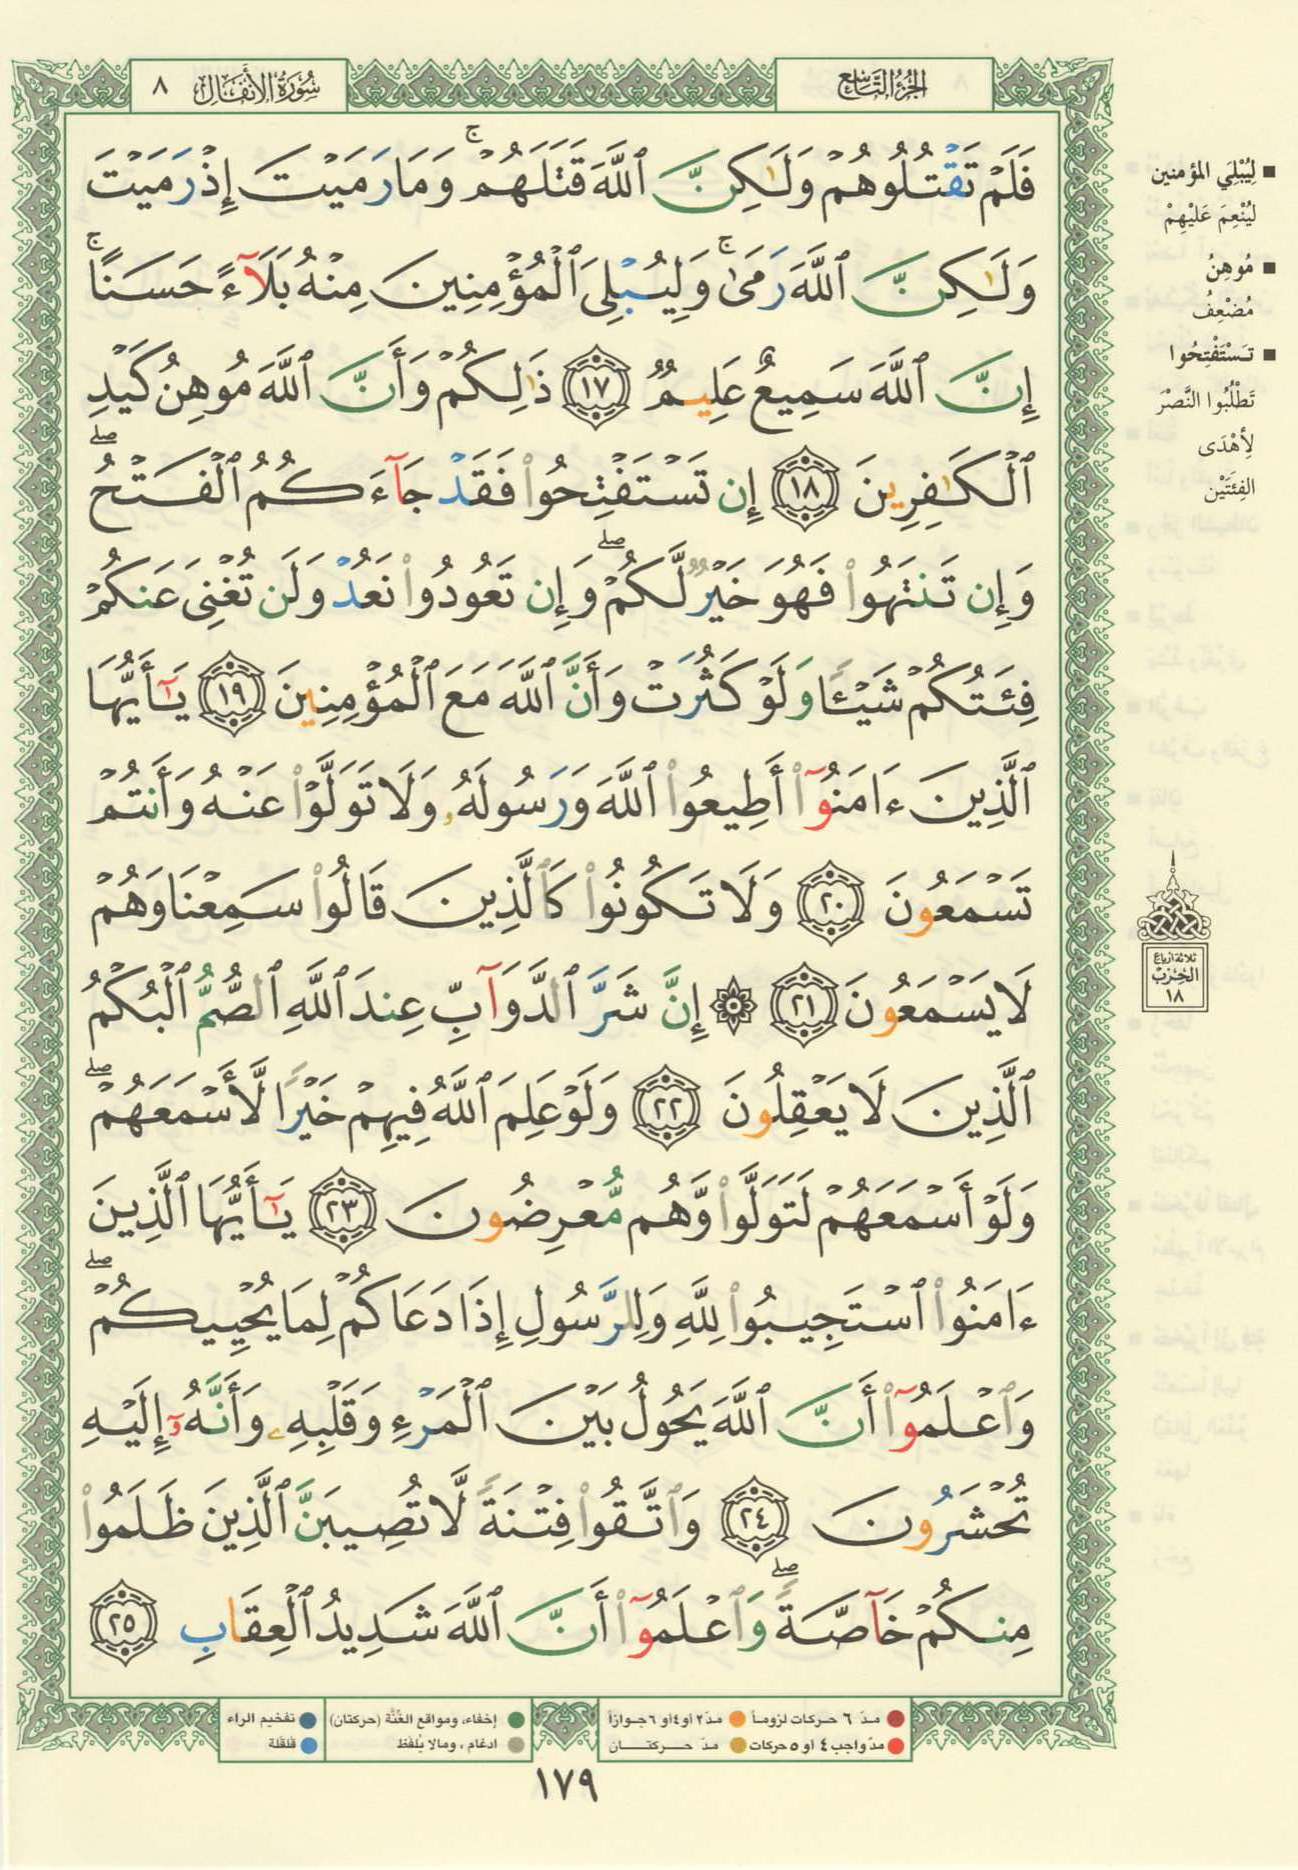 الجُزْءُ التَّاسِعُ
سُورَةُ الأَنفَالِ ٨
فَلَمْ تَقْتُلُوهُمْ وَلَٰكِنَّ ٱللَّهَ قَتَلَهُمْ ۚ وَمَا رَمَيْتَ إِذْ رَمَيْتَ
وَلَٰكِنَّ ٱللَّهَ رَمَىٰ ۚ وَلِيُبْلِىَ ٱلْمُؤْمِنِينَ مِنْهُ بَلَآءً حَسَنًا ۚ
إِنَّ ٱللَّهَ سَمِيعٌ عَلِيمٌ ١٧ ذَٰلِكُمْ وَأَنَّ ٱللَّهَ مُوهِنُ كَيْدِ
ٱلْكَٰفِرِينَ ١٨ إِن تَسْتَفْتِحُوا۟ فَقَدْ جَآءَكُمُ ٱلْفَتْحُ ۖ
وَإِن تَنتَهُوا۟ فَهُوَ خَيْرٌ لَّكُمْ ۖ وَإِن تَعُودُوا۟ نَعُدْ وَلَن تُغْنِىَ عَنكُمْ
فِئَتُكُمْ شَيْـًٔا وَلَوْ كَثُرَتْ وَأَنَّ ٱللَّهَ مَعَ ٱلْمُؤْمِنِينَ ١٩ يَٰٓأَيُّهَا
ٱلَّذِينَ ءَامَنُوٓا۟ أَطِيعُوا۟ ٱللَّهَ وَرَسُولَهُۥ وَلَا تَوَلَّوْا۟ عَنْهُ وَأَنتُمْ
تَسْمَعُونَ ٢٠ وَلَا تَكُونُوا۟ كَٱلَّذِينَ قَالُوا۟ سَمِعْنَا وَهُمْ
لَا يَسْمَعُونَ ٢١ ۞ إِنَّ شَرَّ ٱلدَّوَآبِّ عِندَ ٱللَّهِ ٱلصُّمُّ ٱلْبُكْمُ
ٱلَّذِينَ لَا يَعْقِلُونَ ٢٢ وَلَوْ عَلِمَ ٱللَّهُ فِيهِمْ خَيْرًا لَّأَسْمَعَهُمْ ۖ
وَلَوْ أَسْمَعَهُمْ لَتَوَلَّوا۟ وَّهُم مُّعْرِضُونَ ٢٣ يَٰٓأَيُّهَا ٱلَّذِينَ
ءَامَنُوا۟ ٱسْتَجِيبُوا۟ لِلَّهِ وَلِلرَّسُولِ إِذَا دَعَاكُمْ لِمَا يُحْيِيكُمْ ۖ
وَٱعْلَمُوٓا۟ أَنَّ ٱللَّهَ يَحُولُ بَيْنَ ٱلْمَرْءِ وَقَلْبِهِۦ وَأَنَّهُۥٓ إِلَيْهِ
تُحْشَرُونَ ٢٤ وَٱتَّقُوا۟ فِتْنَةً لَّا تُصِيبَنَّ ٱلَّذِينَ ظَلَمُوا۟
مِنكُمْ خَآصَّةً ۖ وَٱعْلَمُوٓا۟ أَنَّ ٱللَّهَ شَدِيدُ ٱلْعِقَابِ ٢٥
■ لِيُبْلِيَ المؤمنين
لِيُنْعِمَ عَلَيْهِمْ
■ مُوهِنُ
مُضْعِفُ
■ تَسْتَفْتِحُوا
تَطْلُبُوا النَّصْرَ
لِأَهْدَى
الفِئَتَيْن
ثلاثة أرباع
الحِزْبْ
١٨
مدّ ٦ حركات لزوماً
مدّ٢ أو٤أو ٦جوازاً
إخفاء، ومواقع الغُنَّة (حركتان)
تفخيم الراء
مدّ واجب ٤ او ٥ حركات
مدّ حركتان
ادغام ، ومالا يُلفَظ
قلقلة
١٧٩